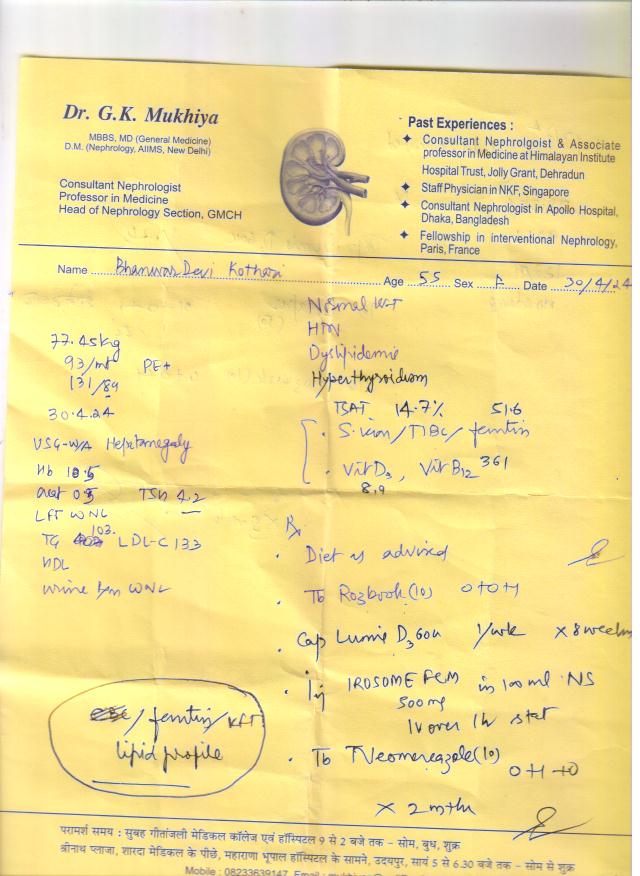 Dr. G.K. Mukhiya
MBBS, MD (General Medicine)
D.M. (Nephrology, AIIMS, New Delhi)
Consultant Nephrologist
Professor in Medicine
Head of Nephrology Section, GMCH
Past Experiences :
Consultant Nephrolgoist & Associate
professor in Medicine at Himalayan Institute
Hospital Trust, Jolly Grant, Dehradun
Staff Physician in NKF, Singapore
Consultant Nephrologist in Apollo Hospital,
Dhaka, Bangladesh
Fellowship in interventional Nephrology,
Paris, France
Name Bhanwar Devi Kothari Age 55 Sex F Date 30/4/24
77.45kg
93/mt PE+
131/89
30.4.24
USG-W/A Hepatomegaly
Hb 10.5
creat 0.5 TSH 4.2
LFT WNL
TG 103. LDL-C 133
HDL
Urine WNL
Normal
HTN
Dyslipidemia
Hyperthyroidism
TSAT 14.7% 51.6
S. iron/TIBC/ferritin
Vit D3, Vit B12 361
8.9
Rx
Diet as advised
Tb Rozbook (10) 0+0+1
Cap Lumie D3 60k 1/wk x 8 weeks
Inj IROSOME FCM in 100 ml NS
500mg
IV over 1h stat
Tb (10) 0+1+0
x 2 mths
/ferritin/KFT
lipid profile
परामर्श समय : सुबह गीतांजली मेडिकल कॉलेज एवं हॉस्पिटल 9 से 2 बजे तक – सोम, बुध, शुक्र
श्रीनाथ प्लाजा, शारदा मेडिकल के पीछे, महाराणा भूपाल हॉस्पिटल के सामने, उदयपुर, सायं 5 से 6.30 बजे तक – सोम से शुक्र
Mobile : 08233639147, Email :